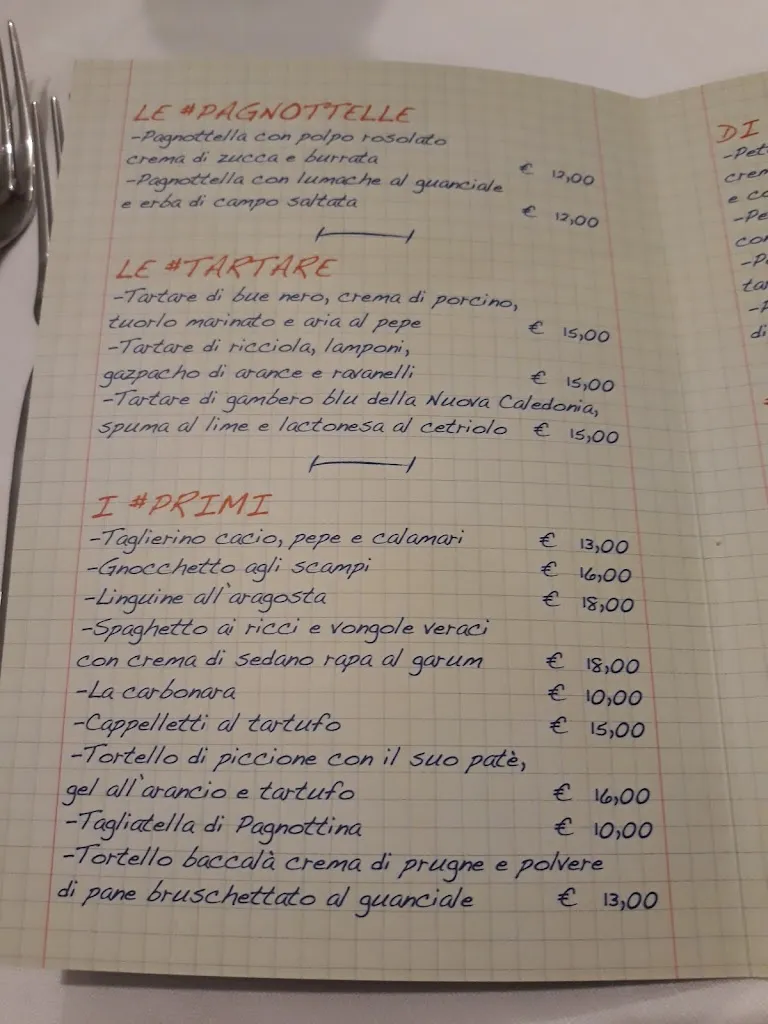 LE #PAGNOTTELLE
-Pagnottella con polpo rosolato
crema di zucca e burrata € 12,00
-Pagnottella con lumache al guanciale
e erba di campo saltata € 12,00
LE #TARTARE
-Tartare di bue nero, crema di porcino,
tuorlo marinato e aria al pepe € 15,00
-Tartare di ricciola, lamponi,
gazpacho di arance e ravanelli € 15,00
-Tartare di gambero blu della Nuova Caledonia,
spuma al lime e lactonesa al cetriolo € 15,00
I #PRIMI
-Taglierino cacio, pepe e calamari € 13,00
-Gnocchetto agli scampi € 16,00
-Linguine all'aragosta € 18,00
-Spaghetto ai ricci e vongole veraci
con crema di sedano rapa al garum € 18,00
-La carbonara € 10,00
-Cappelletti al tartufo € 15,00
-Tortello di piccione con il suo patè,
gel all'arancio e tartufo € 16,00
-Tagliatella di Pagnottina € 10,00
-Tortello baccalà crema di prugne e polvere
di pane bruschettato al guanciale € 13,00
DI